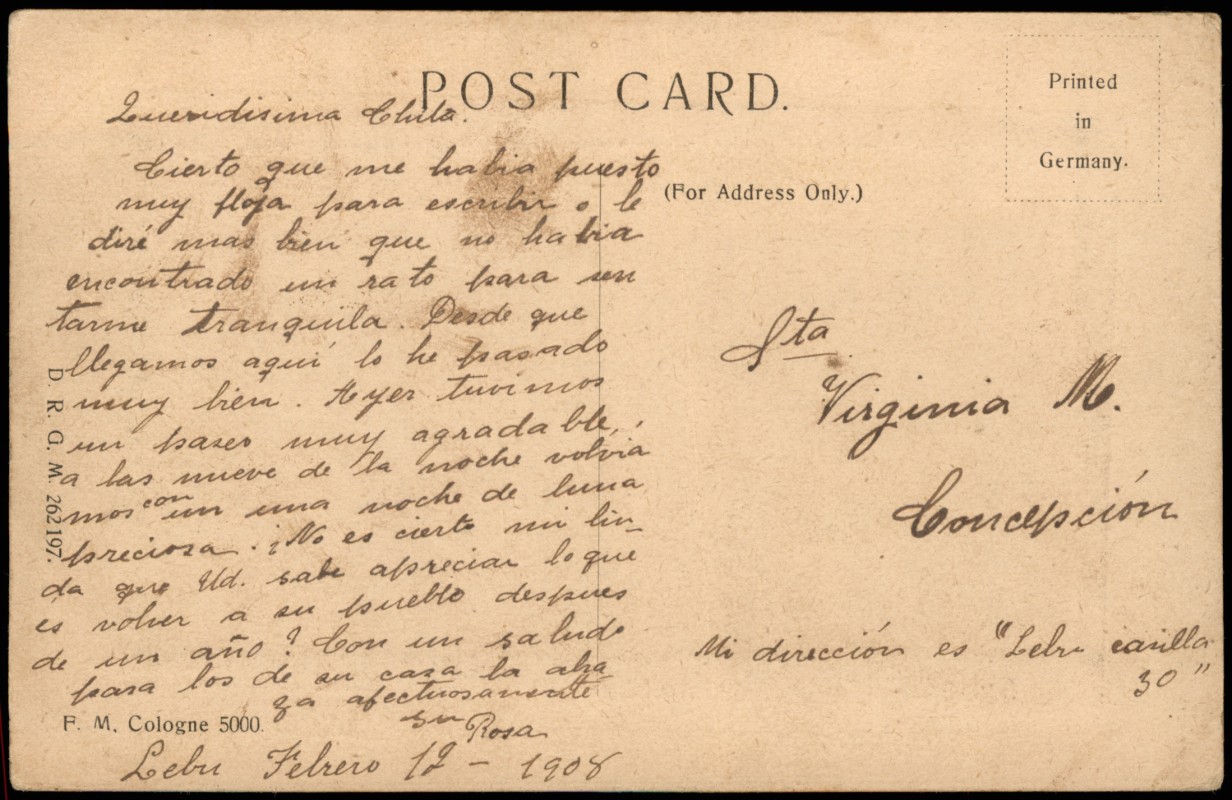 POST CARD.
Printed
in
Germany.
(For Address Only.)
Queridisima Chila.
Cierto que me habia puesto
muy floja para escribir o le
diré mas bien que no habia
encontrado un rato para sen
tarme tranquila. Desde que
llegamos aquí lo he pasado
muy bien. Ayer tuvimos
un paseo muy agradable,
a las nueve de la noche volvia
mos con un una noche de luna
preciosa. ¿No es cierto mi lin-
da que Ud. sabe apreciar lo que
es volver a su pueblo despues
de un año? Con un saludo
para los de su casa la abra
za afectuosamente
su Rosa
Lebu Febrero 12 - 1908
D. R. G. M. 262197.
F. M. Cologne 5000.
Sta
Virginia M.
Concepción
Mi dirección es "Lebu casilla
30"